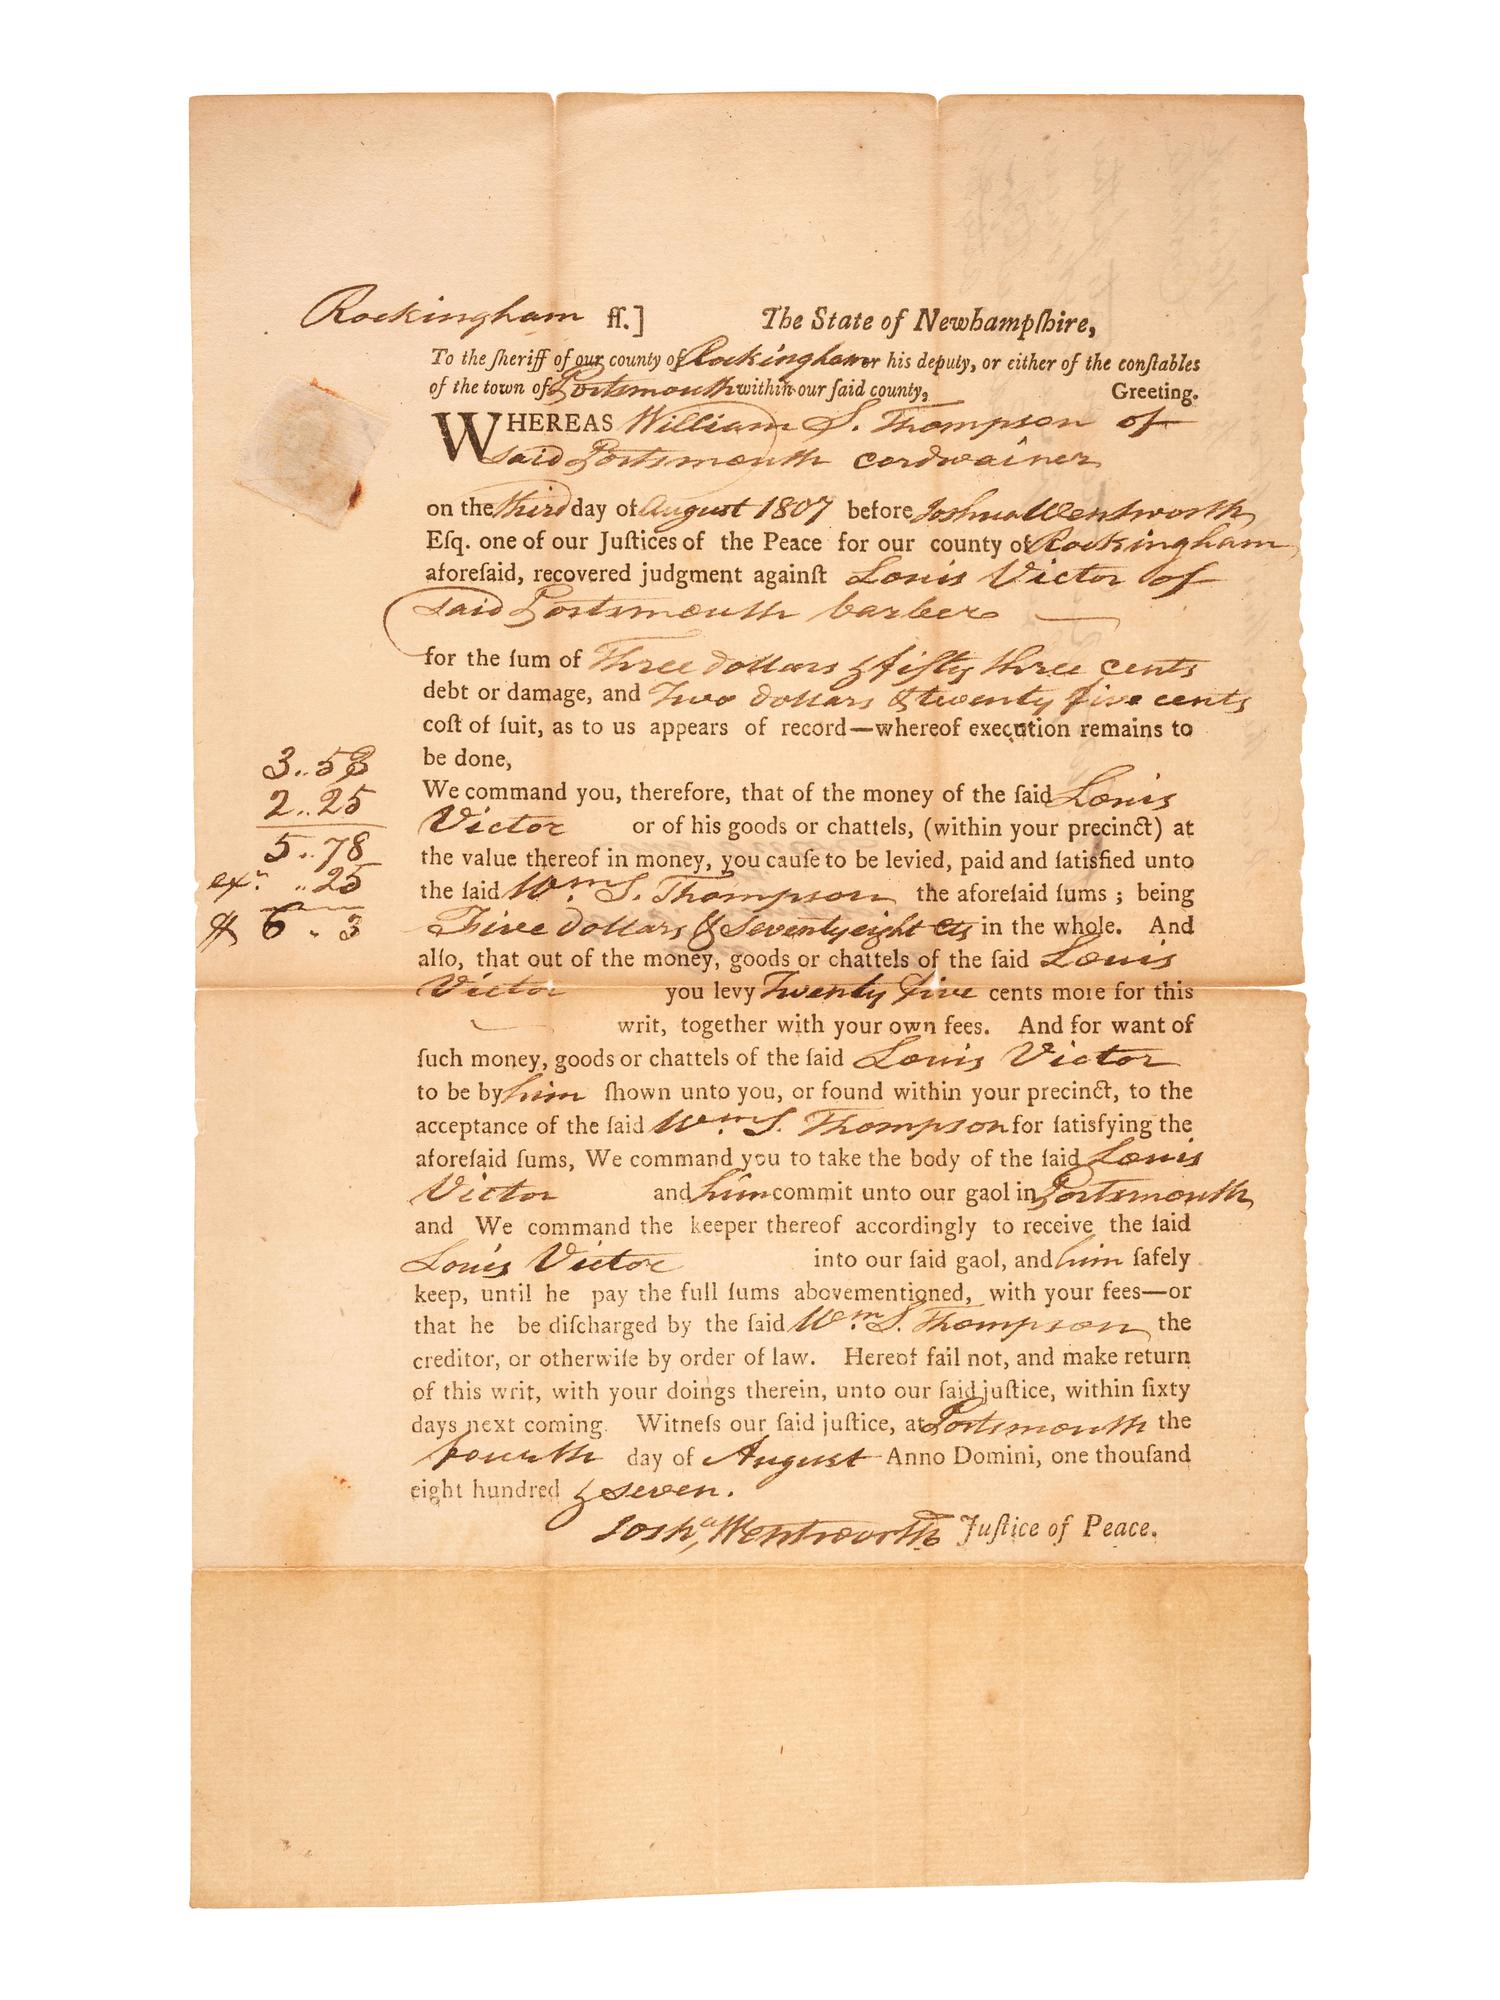 Rockingham ſſ.] The State of Newhampſhire,
To the ſheriff of our county of Rockingham or his deputy, or either of the conſtables
of the town of Portsmouth within our ſaid county, Greeting.
WHEREAS William S. Thompson of
said Portsmouth cordwainer
on the third day of August 1807 before Joshua Wentworth
Eſq. one of our Juſtices of the Peace for our county of Rockingham
aforeſaid, recovered judgment againſt Louis Victor of
said Portsmouth barber
for the ſum of Three dollars & fifty three cents
debt or damage, and Two dollars & twenty five cents
coſt of ſuit, as to us appears of record—whereof execution remains to
be done,
3..53
2..25
5..78
exn. ..25
$ 6 .. 3
We command you, therefore, that of the money of the ſaid Louis
Victor or of his goods or chattels, (within your precinct) at
the value thereof in money, you cauſe to be levied, paid and ſatisfied unto
the ſaid Wm. S. Thompson the aforeſaid ſums ; being
Five dollars & Seventy eight cts in the whole. And
alſo, that out of the money, goods or chattels of the ſaid Louis
Victor you levy Twenty five cents more for this
writ, together with your own fees. And for want of
ſuch money, goods or chattels of the ſaid Louis Victor
to be by him ſhown unto you, or found within your precinct, to the
acceptance of the ſaid Wm. S. Thompson for ſatisfying the
aforeſaid ſums, We command you to take the body of the ſaid Louis
Victor and him commit unto our gaol in Portsmouth
and We command the keeper thereof accordingly to receive the ſaid
Louis Victor into our ſaid gaol, and him ſafely
keep, until he pay the full ſums abovementioned, with your fees—or
that he be diſcharged by the ſaid Wm. S. Thompson the
creditor, or otherwiſe by order of law. Hereof fail not, and make return
of this writ, with your doings therein, unto our ſaid juſtice, within ſixty
days next coming. Witneſs our ſaid juſtice, at Portsmouth the
fourth day of August Anno Domini, one thouſand
eight hundred & seven.
Josha, Wentworth Juſtice of Peace.